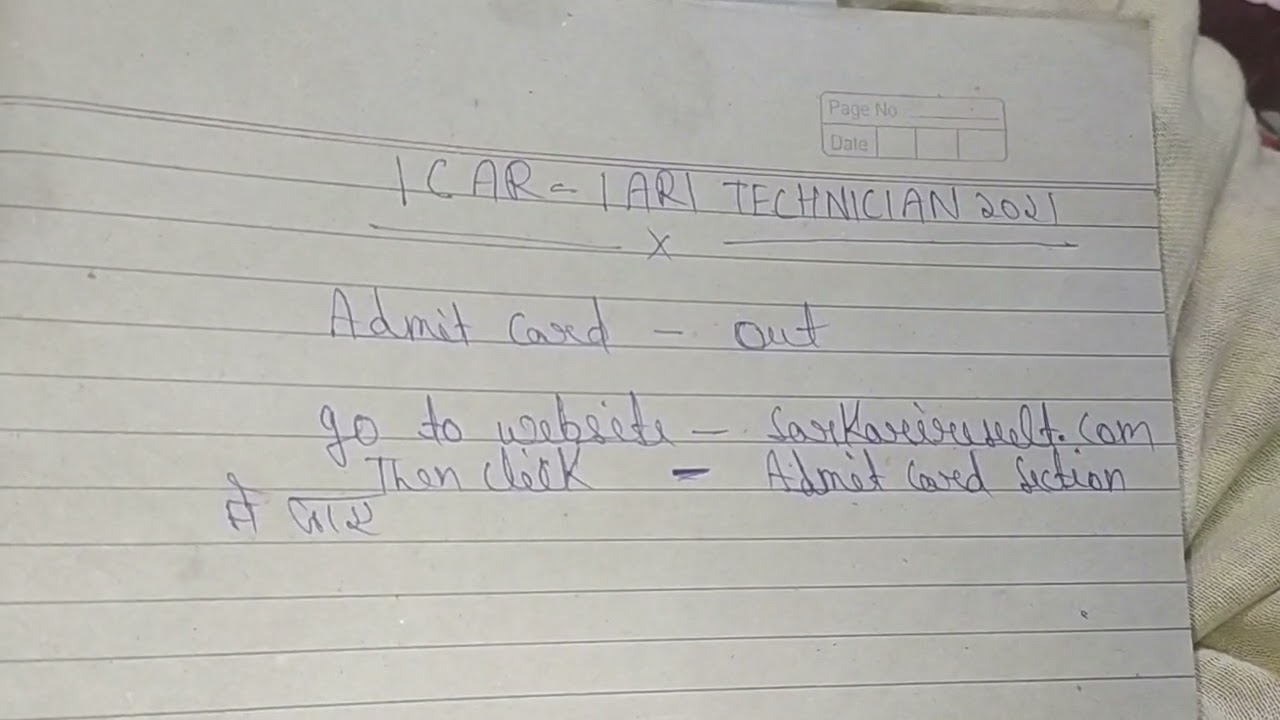 Page No
Date
ICAR - IARI TECHNICIAN 2021
X
Admit card - out
go to website - Sarkariresult.com
Then click - Admit card section
में जाए